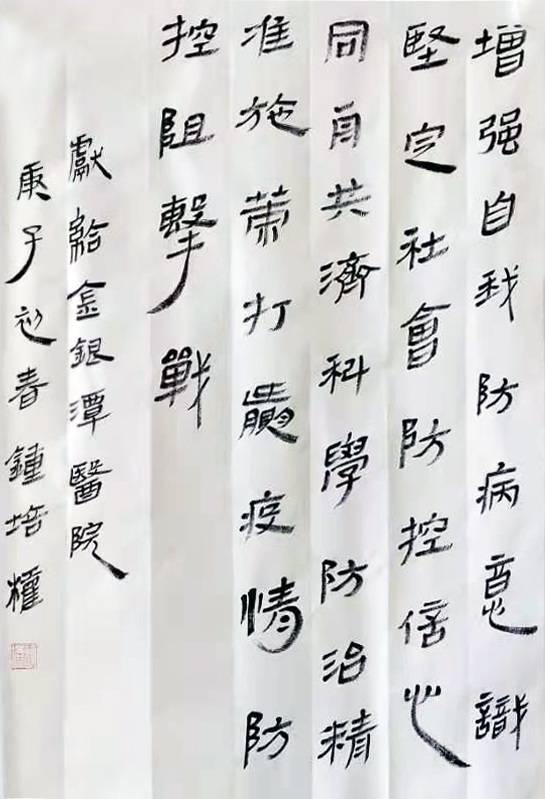 增强自我防病意識
堅定社會防控信心
同舟共濟科學防治精
准施策打贏疫情防
控阻擊戰
獻給金銀潭醫院
庚子初春鍾培